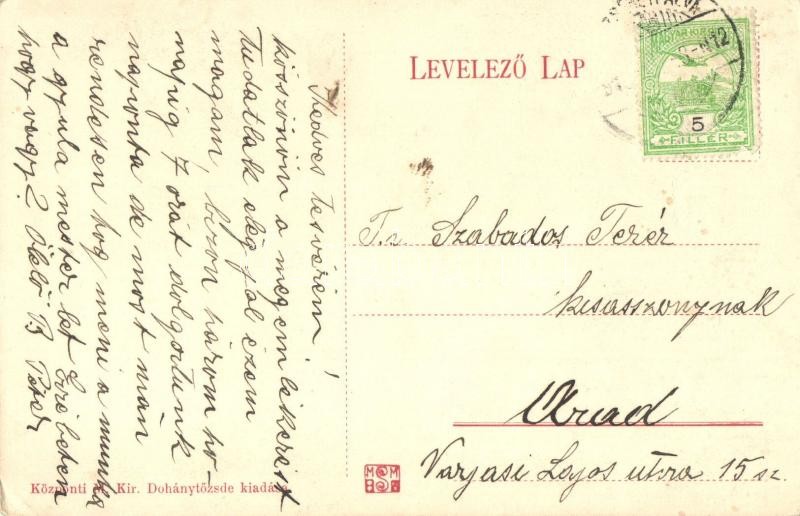 LEVELEZŐ LAP
MAGYAR KIR.
5
FILLÉR
Kedves testvérem!
köszönöm a megemlékezést
Tudatlak elég jól érzem
magam, bizon három hó-
napig 7 orát dolgoztunk
naponta de most már
rendesen hog meni a munka
a gyula mester let
hogy vagy? Ölelő B. Péter
T. Szabados Teréz
kisasszonynak
Arad
Varjasi Lajos utza 15 sz.
Központi M. Kir. Dohánytőzsde kiadása